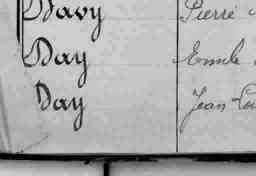 Davy Pierre
Day Emile
Day Jean-Lou